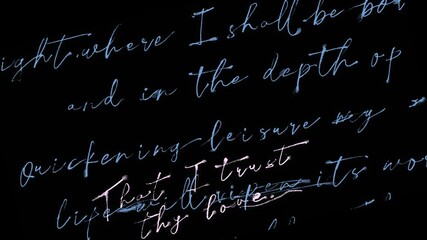 ight where I shall be bo
and in the depth op
Quickening leisure my
That I trust
life will ripen its wor
thy love..